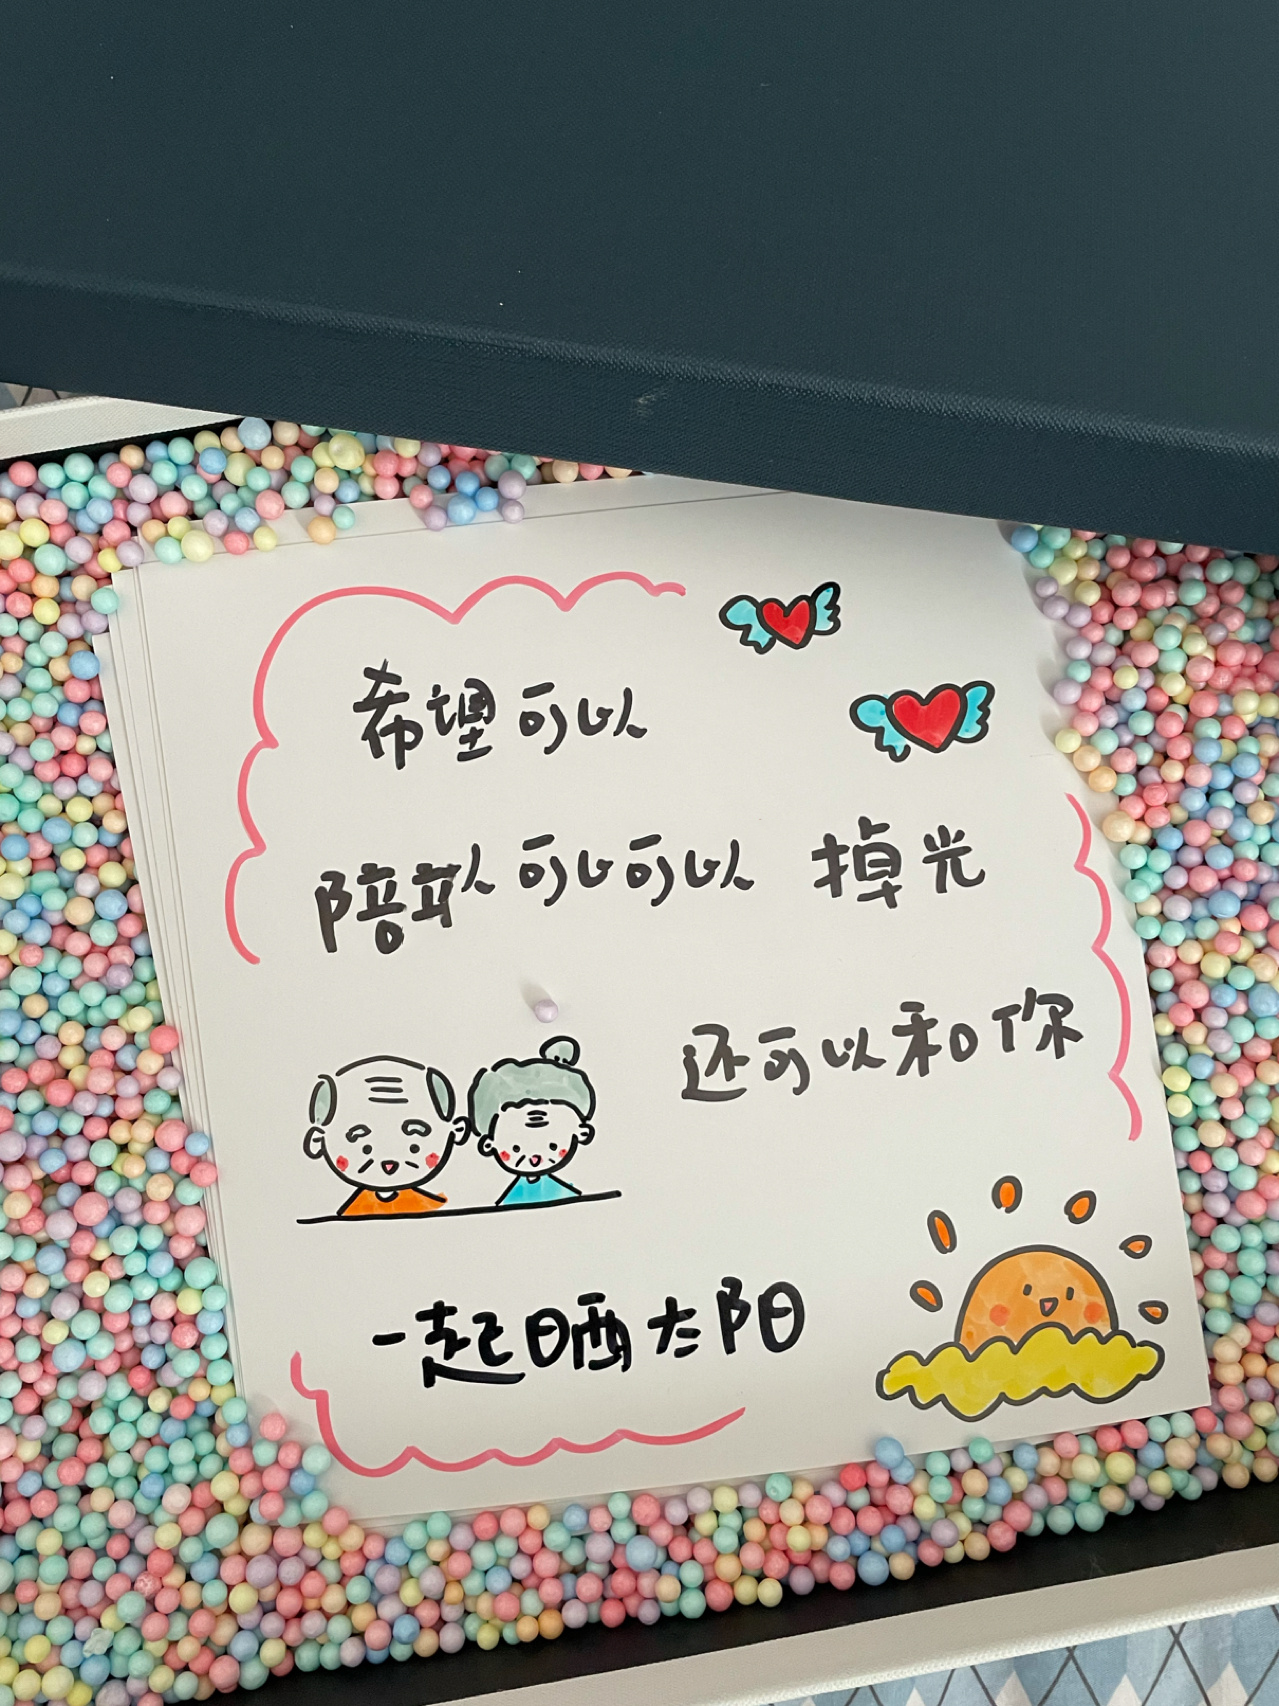 希望可以
陪 可以可以 掉光
还可以和你
一起晒太阳